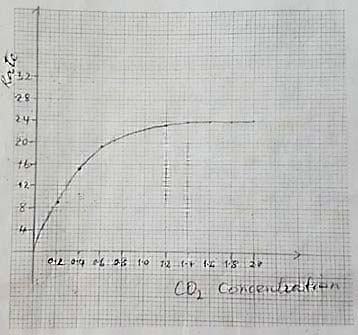 Rate
32
28
24
20
16
12
8
4
0.2 0.4 0.6 0.8 1.0 1.2 1.4 1.6 1.8 2.0
CO2 Concentration